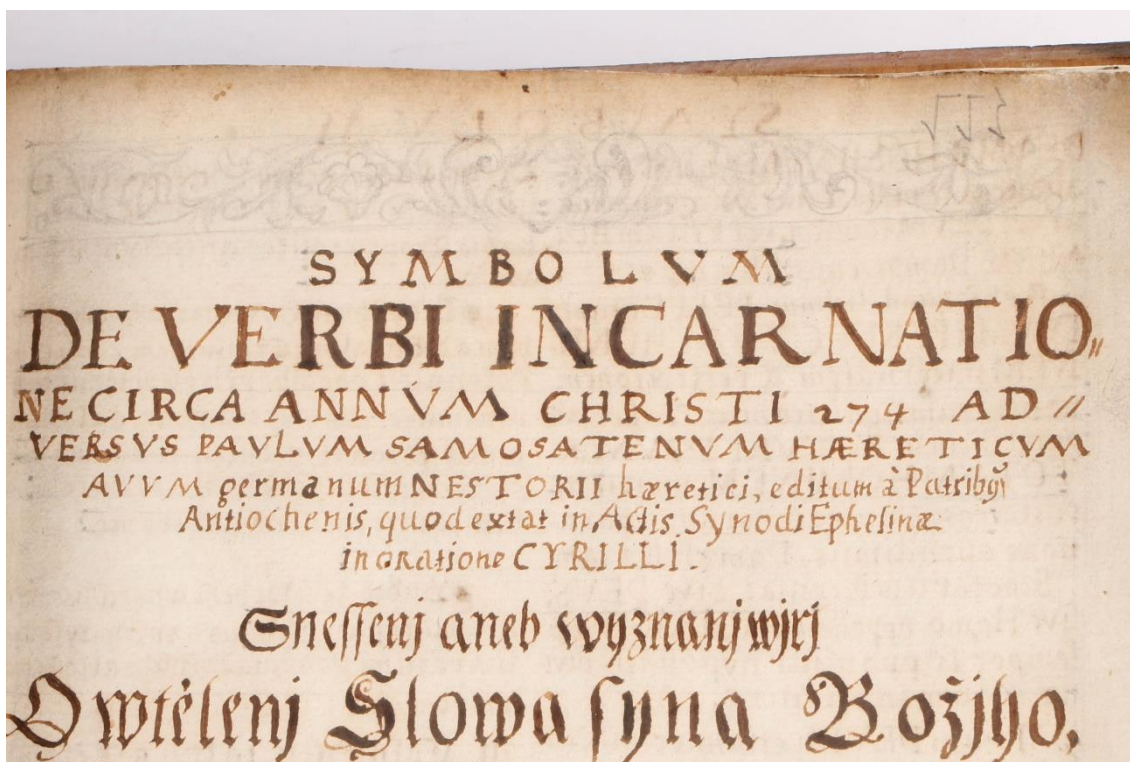 SYMBOLVM
DE VERBI INCARNATIO〃
NE CIRCA ANNVM CHRISTI 274 AD〃
VERSVS PAVLVM SAMOSATENVM HÆRETICVM
AVVM germanum NESTORII hæretici, editum à Patribus
Antiochenis, quod extat in Actis Synodi Ephesinæ
in oratione CYRILLI.
Snessenj aneb wyznanj wjrj
O wtělenj Slowa syna Božjho,